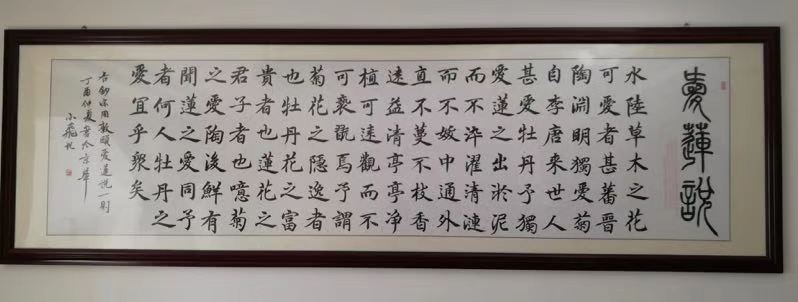 愛蓮說
水陸草木之花
可愛者甚蕃晉
陶淵明獨愛菊
自李唐来世人
甚愛牡丹予獨
愛蓮之出淤泥
而不染濯清漣
而不妖中通外
直不蔓不枝香
遠益清亭亭净
植可遠觀而不
可褻翫焉予謂
菊花之隱逸者
也牡丹花之富
貴者也蓮花之
君子者也噫菊
之愛陶後鮮有
聞蓮之愛同予
者何人牡丹之
愛宜乎衆矣
周敦頤愛蓮說一則
丁酉仲夏書於京華
小飛